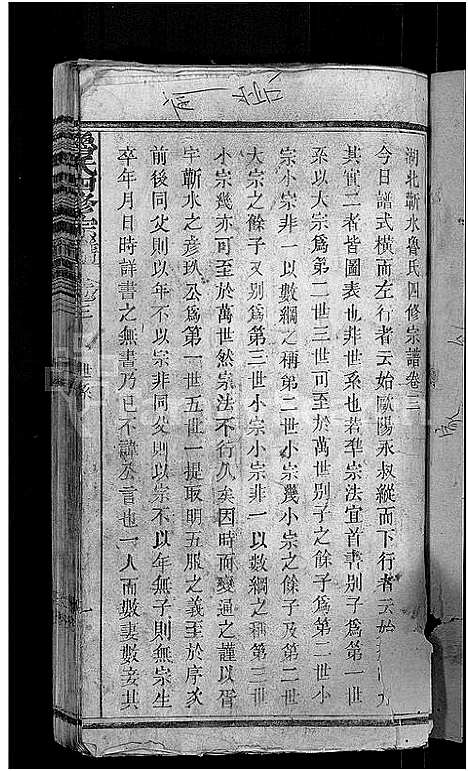 湖北蘄水魯氏四修宗譜卷三
今日譜式橫而左行者云始歐陽永叔縱而下行者云始
其實二者皆圖表也非世系也若準宗法宜首書別子爲第一世
系以大宗爲第二世三世可至於萬世別子之餘子爲第二世小
宗小宗非一以數綱之稱第二世小宗幾小宗之餘子及第二世
大宗之餘子又別爲第三世小宗小宗非一以數綱之稱第三世
小宗幾亦可至於萬世然宗法不行久矣因時而變通之謹以胥
宇蘄水之彥玖公爲第一世五世一提取明五服之義至於序次
前後同父則以年不以宗非同父則以宗不以年無子則無宗生
卒年月日時詳書之無書乃已不諱公言也一人而數妻數妾其
魯氏四修宗譜
世系
一